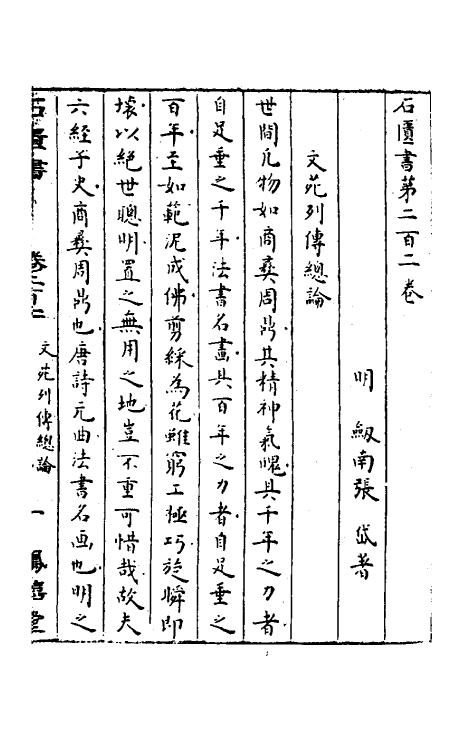 石匱書第二百二卷
明 劒南張 岱著
文苑列傳總論
世間凡物如商彝周鼎其精神氣魄具千年之力者
自足垂之千年法書名畫具百年之力者自足垂之
百年至如範泥成佛剪綵為花雖窮工極巧旋瞬即
壞以絕世聰明置之無用之地豈不重可惜哉故夫
六經子史商彝周鼎也唐詩元曲法書名画也明之
石匱書 卷二百二 文苑列傳總論 一 鳳嬉堂